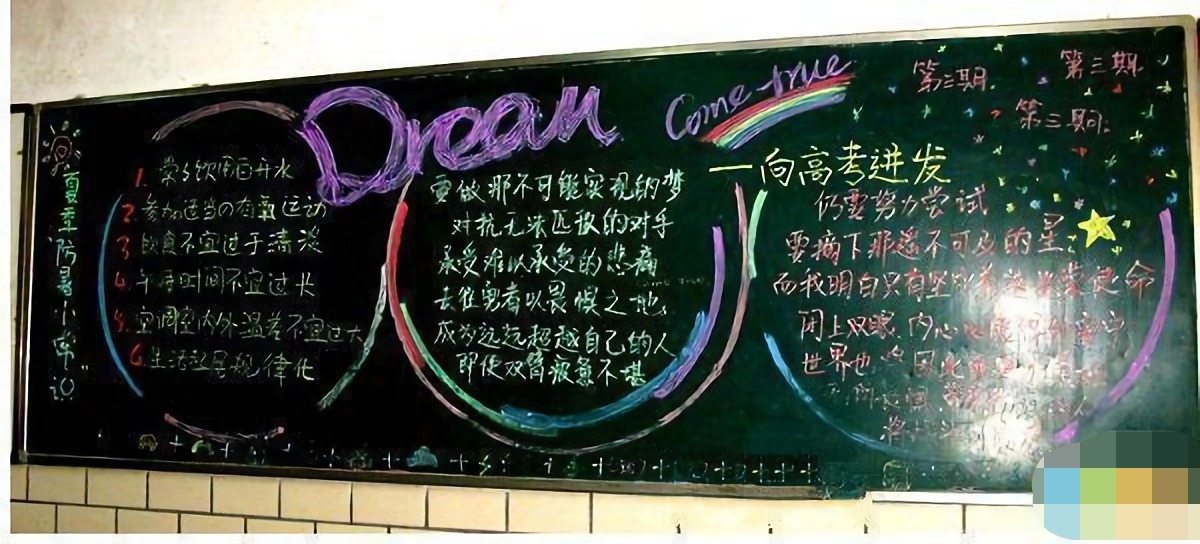 夏季防暑小常识
1. 常多饮用白开水
2. 参加适当の有氧运动
3 饮食不宜过于清淡
4. 午睡时间不宜过长
5. 空调室内外温差不宜过大
6. 生活起居规律化
Dream
Come true
一向高考进发
第三期
第三期
第三期
要做那不可能实现的梦
对抗无法匹敌的对手
承受难以承受的悲痛
去往勇者以畏惧之地
成为远远超越自己的人
即使双臂疲惫不堪
仍要努力尝试
要摘下那遥不可及的星
而我明白只有坚
使命
闭上双眼,内心
世界也
因此